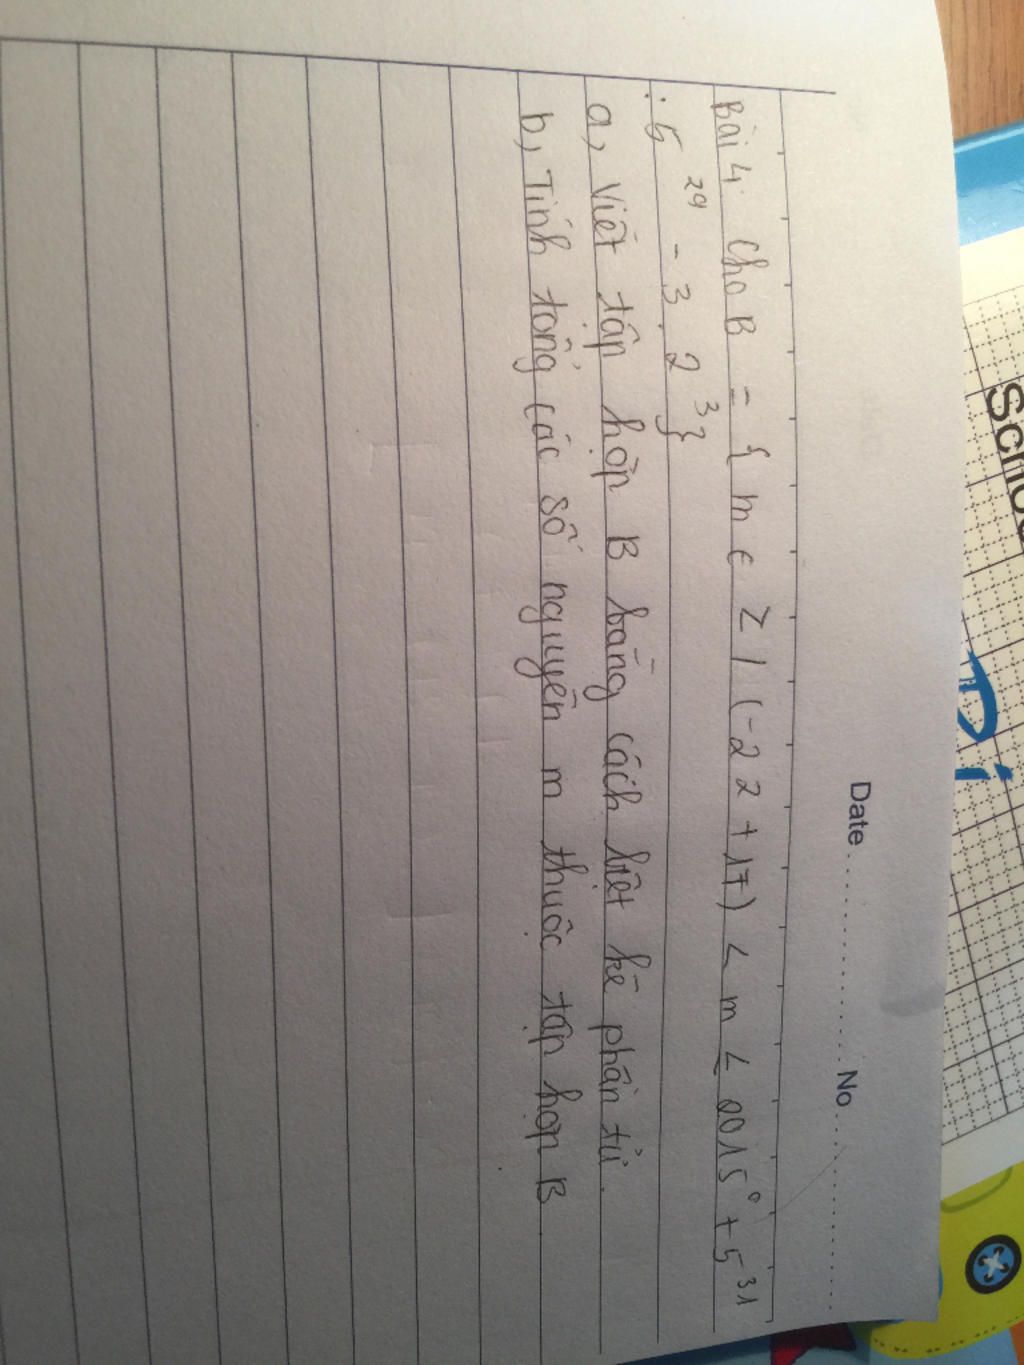 Date ........ No ........
Bài 4. Cho B = { m ∈ Z | (-22 + 17) < m ≤ 2015⁰ + 5³¹
: 5²⁹ - 3 . 2³}
a, Viết tập hợp B bằng cách liệt kê phần tử.
b, Tính tổng các số nguyên m thuộc tập hợp B